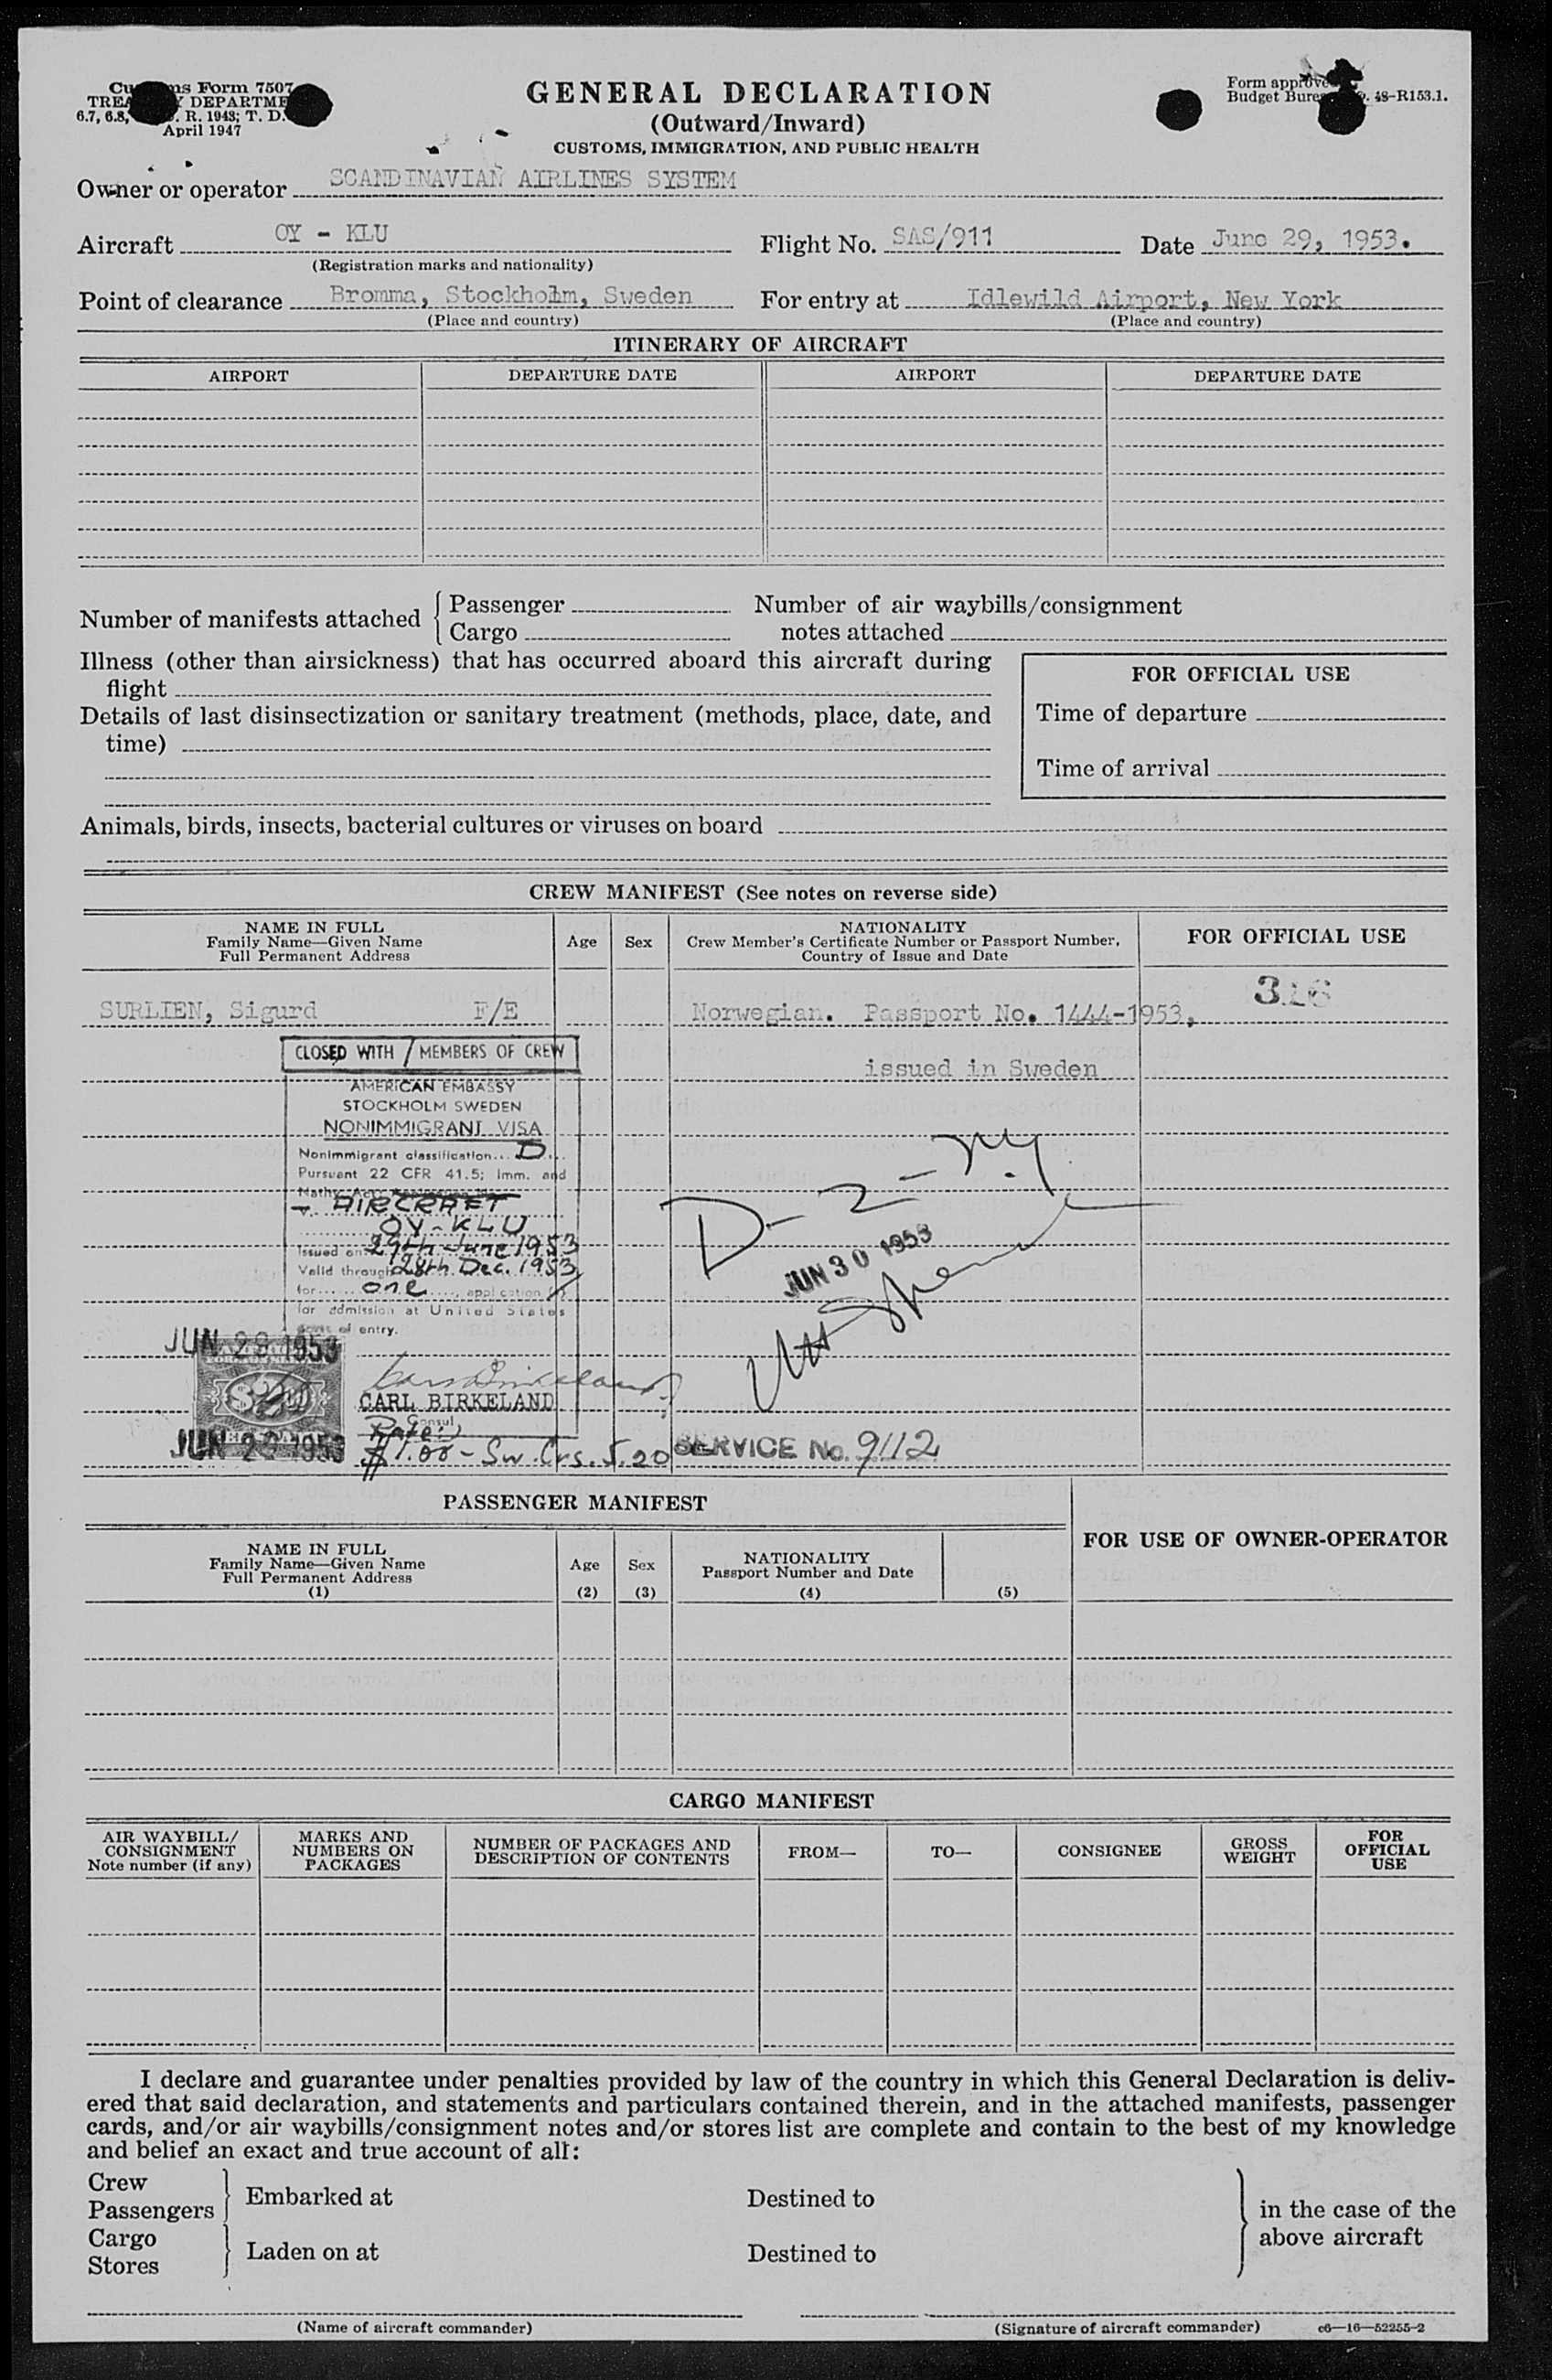 ms Form 7507
GENERAL DECLARATION
Form approve
TREA Y DEPARTME
Budget Bure . 48-R153.1.
6.7, 6.8, . R. 1943; T. D.
(Outward/Inward)
April 1947
CUSTOMS, IMMIGRATION, AND PUBLIC HEALTH
Owner or operator SCANDINAVIAN AIRLINES SYSTEM
Aircraft OY - KLU Flight No. SAS/911 Date June 29, 1953.
(Registration marks and nationality)
Point of clearance Bromma, Stockholm, Sweden For entry at Idlewild Airport, New York
(Place and country) (Place and country)
ITINERARY OF AIRCRAFT
AIRPORT DEPARTURE DATE AIRPORT DEPARTURE DATE
Number of manifests attached { Passenger Number of air waybills/consignment
Cargo notes attached
Illness (other than airsickness) that has occurred aboard this aircraft during
flight
FOR OFFICIAL USE
Details of last disinsectization or sanitary treatment (methods, place, date, and
time)
Time of departure
Time of arrival
Animals, birds, insects, bacterial cultures or viruses on board
CREW MANIFEST (See notes on reverse side)
NAME IN FULL
Family Name—Given Name
Full Permanent Address
Age
Sex
NATIONALITY
Crew Member's Certificate Number or Passport Number,
Country of Issue and Date
FOR OFFICIAL USE
316
SURLIEN, Sigurd F/E Norwegian. Passport No. 1444-1953,
issued in Sweden
CLOSED WITH 1 MEMBERS OF CREW
AMERICAN EMBASSY
STOCKHOLM SWEDEN
NONIMMIGRANT VISA
Nonimmigrant classification... D...
Pursuant 22 CFR 41.5; Imm. and
AIRCRAFT
OY-KLU
Issued on 29th June 1953
Valid through 28th Dec. 1953
for one application
for admission at United States
of entry.
D-2-NY
JUN 30 1953
JUN 29 1953
$2.00
CARL BIRKELAND
Consul
JUN 29 1953
Rate:
$1.00 - Sw. Crs. 5.20
SERVICE No. 9112
PASSENGER MANIFEST
FOR USE OF OWNER-OPERATOR
NAME IN FULL
Family Name—Given Name
Full Permanent Address
(1)
Age
(2)
Sex
(3)
NATIONALITY
Passport Number and Date
(4)
(5)
CARGO MANIFEST
AIR WAYBILL/
CONSIGNMENT
Note number (if any)
MARKS AND
NUMBERS ON
PACKAGES
NUMBER OF PACKAGES AND
DESCRIPTION OF CONTENTS
FROM—
TO—
CONSIGNEE
GROSS
WEIGHT
FOR
OFFICIAL
USE
I declare and guarantee under penalties provided by law of the country in which this General Declaration is deliv-
ered that said declaration, and statements and particulars contained therein, and in the attached manifests, passenger
cards, and/or air waybills/consignment notes and/or stores list are complete and contain to the best of my knowledge
and belief an exact and true account of all:
Crew
Passengers
Embarked at
Destined to
Cargo
Stores
Laden on at
Destined to
in the case of the
above aircraft
(Name of aircraft commander)
(Signature of aircraft commander)
c6—16—52255-2